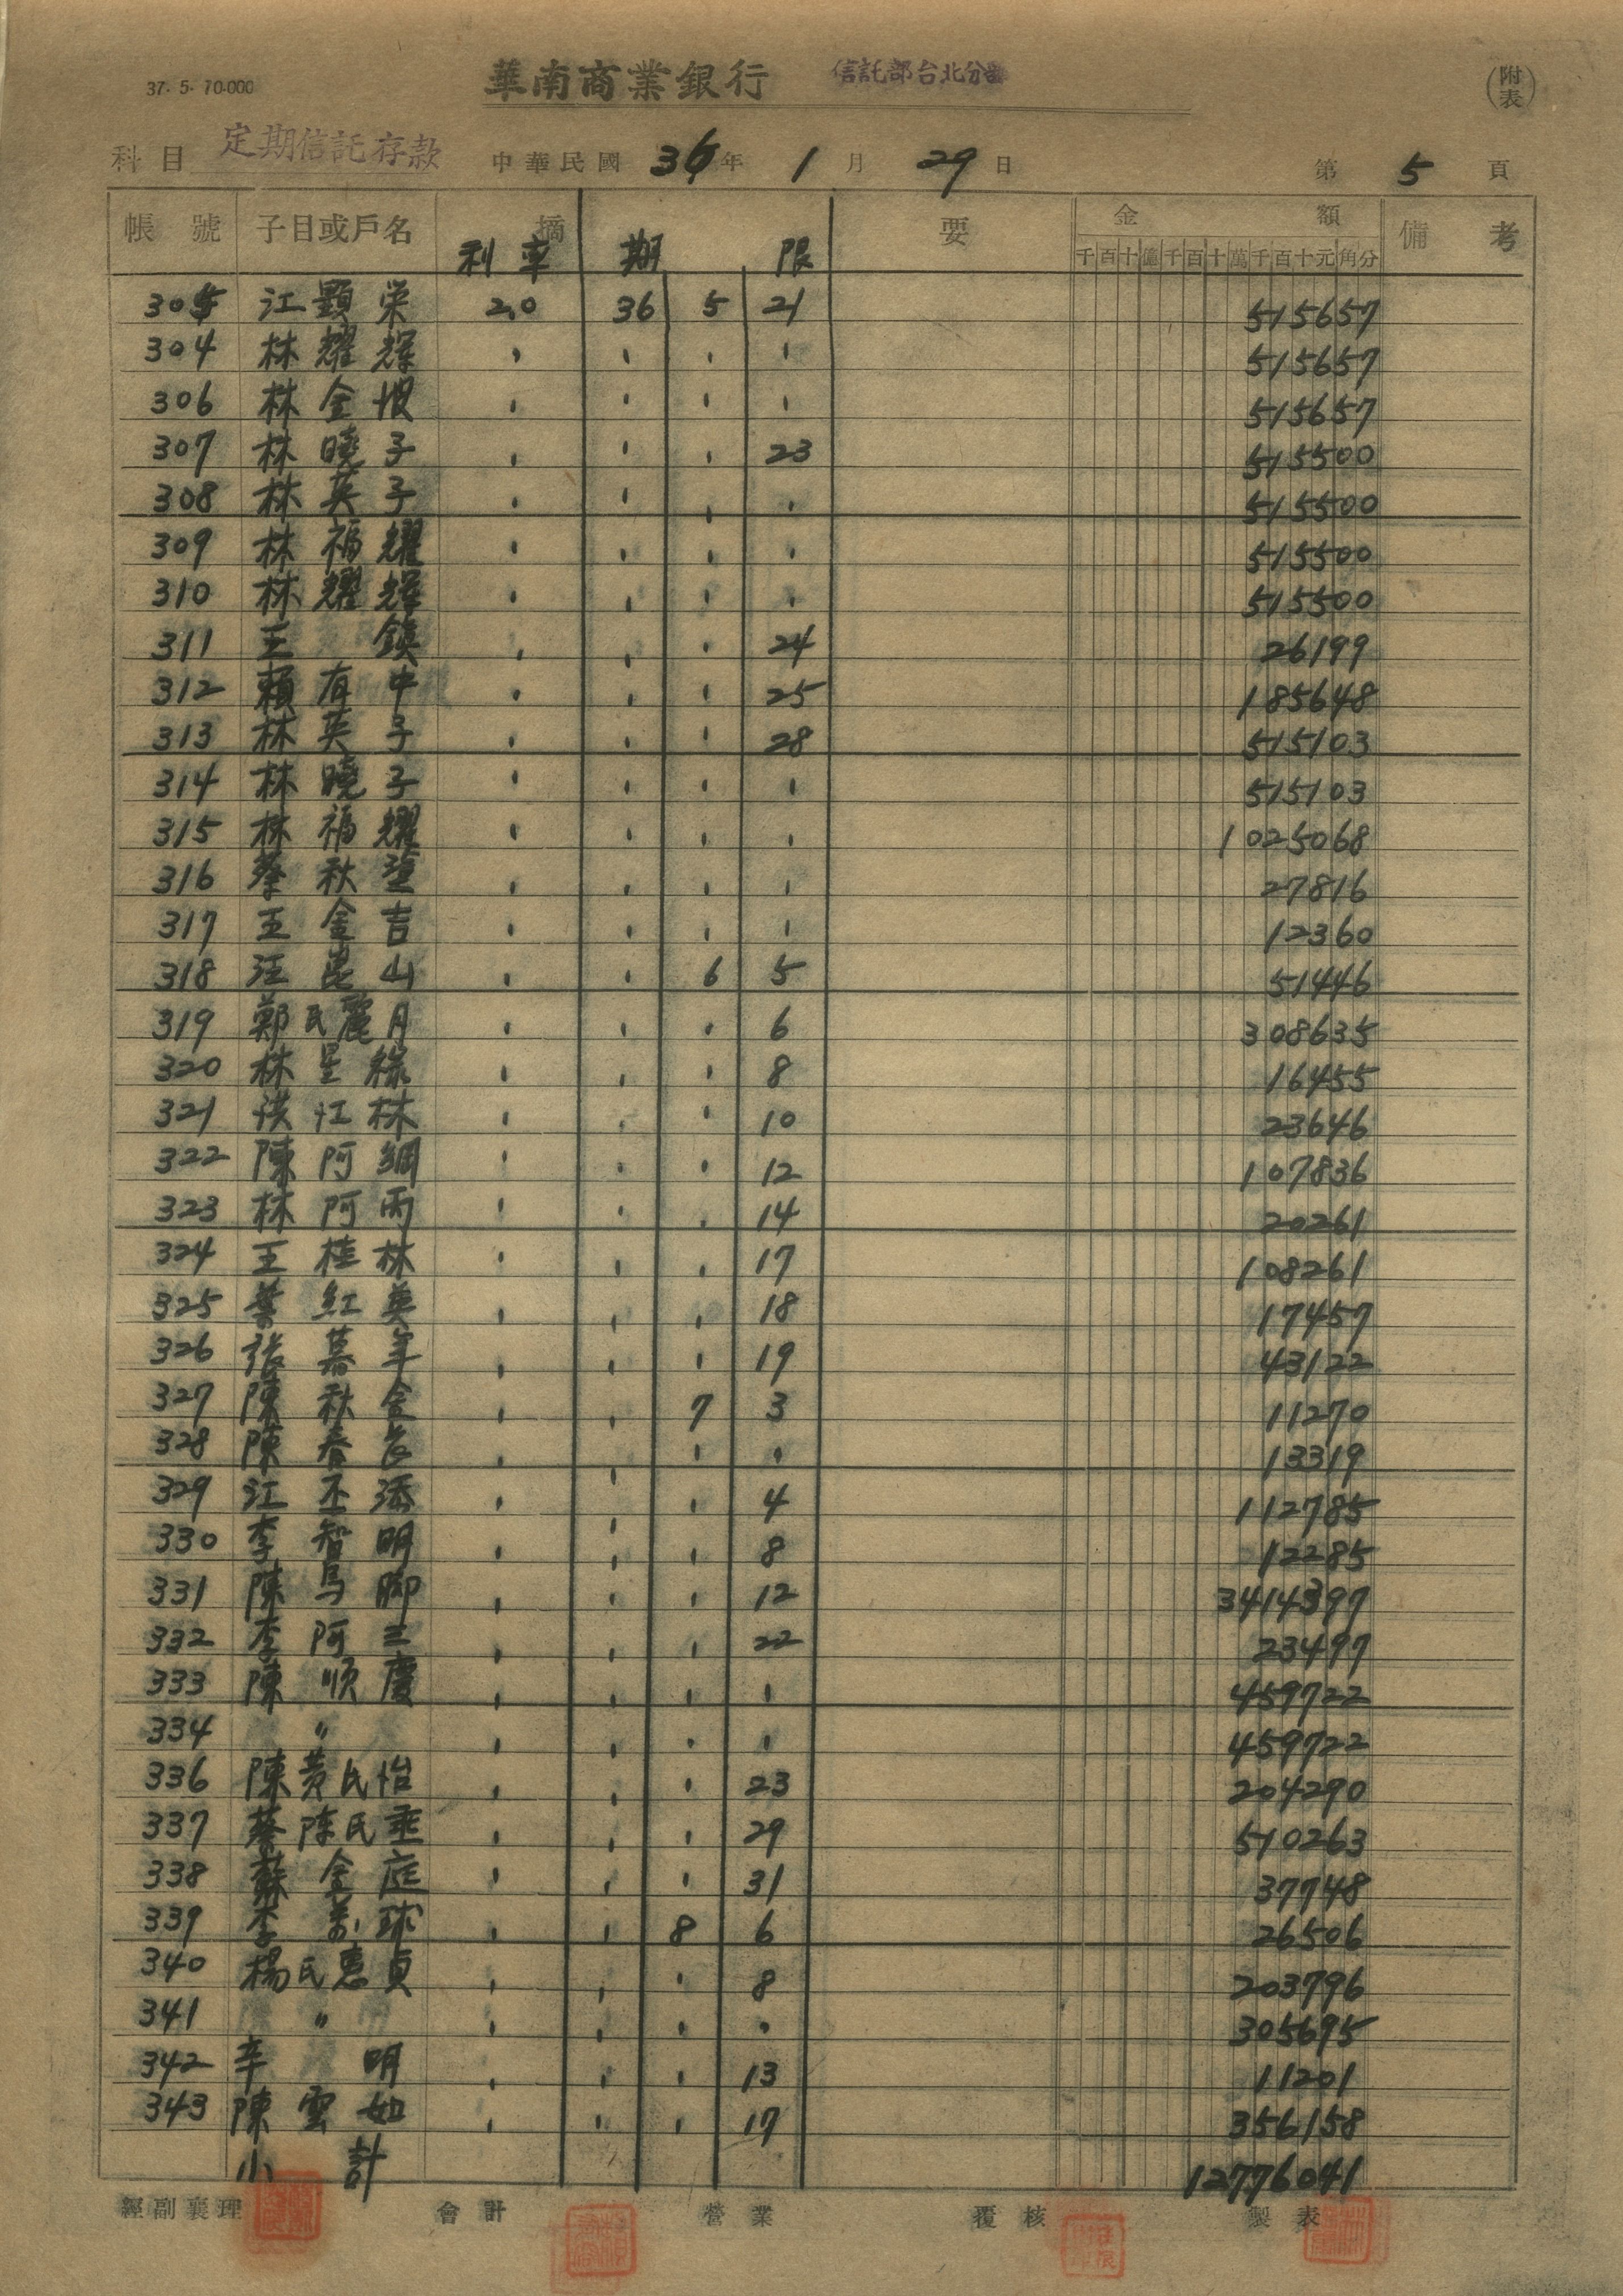 37. 5. 70.000
華南商業銀行 信託部台北分部
(附表)
科目 定期信託存款 中華民國 36年 1月 29日 第 5 頁
帳號 子目或戶名 摘 要 金額 備考
利率 期限 千百十億千百十萬千百十元角分
305 江顯榮 2.0 36 5 21 515657
304 林耀輝 〃 〃 〃 〃 515657
306 林金 〃 〃 〃 〃 515657
307 林曉子 〃 〃 〃 23 515500
308 林英子 〃 〃 〃 〃 515500
309 林福耀 〃 〃 〃 〃 515500
310 林耀輝 〃 〃 〃 〃 515500
311 王鎮 〃 〃 〃 24 26199
312 賴有中 〃 〃 〃 25 185648
313 林英子 〃 〃 〃 28 515103
314 林曉子 〃 〃 〃 〃 515103
315 林福耀 〃 〃 〃 〃 1025068
316 蔡秋 〃 〃 〃 〃 27816
317 王金吉 〃 〃 〃 〃 12360
318 汪崑山 〃 〃 6 5 51446
319 鄭氏麗月 〃 〃 〃 6 308635
320 林呈祿 〃 〃 〃 8 16455
321 洪江林 〃 〃 〃 10 23646
322 陳阿綢 〃 〃 〃 12 107836
323 林阿丙 〃 〃 〃 14 20261
324 王桂林 〃 〃 〃 17 108261
325 葉紅英 〃 〃 〃 18 17457
326 張慕年 〃 〃 〃 19 43122
327 陳秋金 〃 〃 7 3 11270
328 陳春 〃 〃 〃 〃 13319
329 江丕添 〃 〃 〃 4 112785
330 李智明 〃 〃 〃 8 12285
331 陳烏腳 〃 〃 〃 12 3414397
332 李阿三 〃 〃 〃 22 23497
333 陳順慶 〃 〃 〃 〃 459722
334 〃 〃 〃 〃 〃 459722
336 陳黃氏怡 〃 〃 〃 23 204290
337 蔡陈氏垂 〃 〃 〃 29 510263
338 蘇金庭 〃 〃 〃 31 37748
339 李球 〃 〃 8 6 26506
340 楊氏惠貞 〃 〃 〃 8 203796
341 〃 〃 〃 〃 〃 305695
342 辛明 〃 〃 〃 13 11201
343 陳雲如 〃 〃 〃 17 356158
小計 12776041
經副襄理 會計 營業 覆核 製表